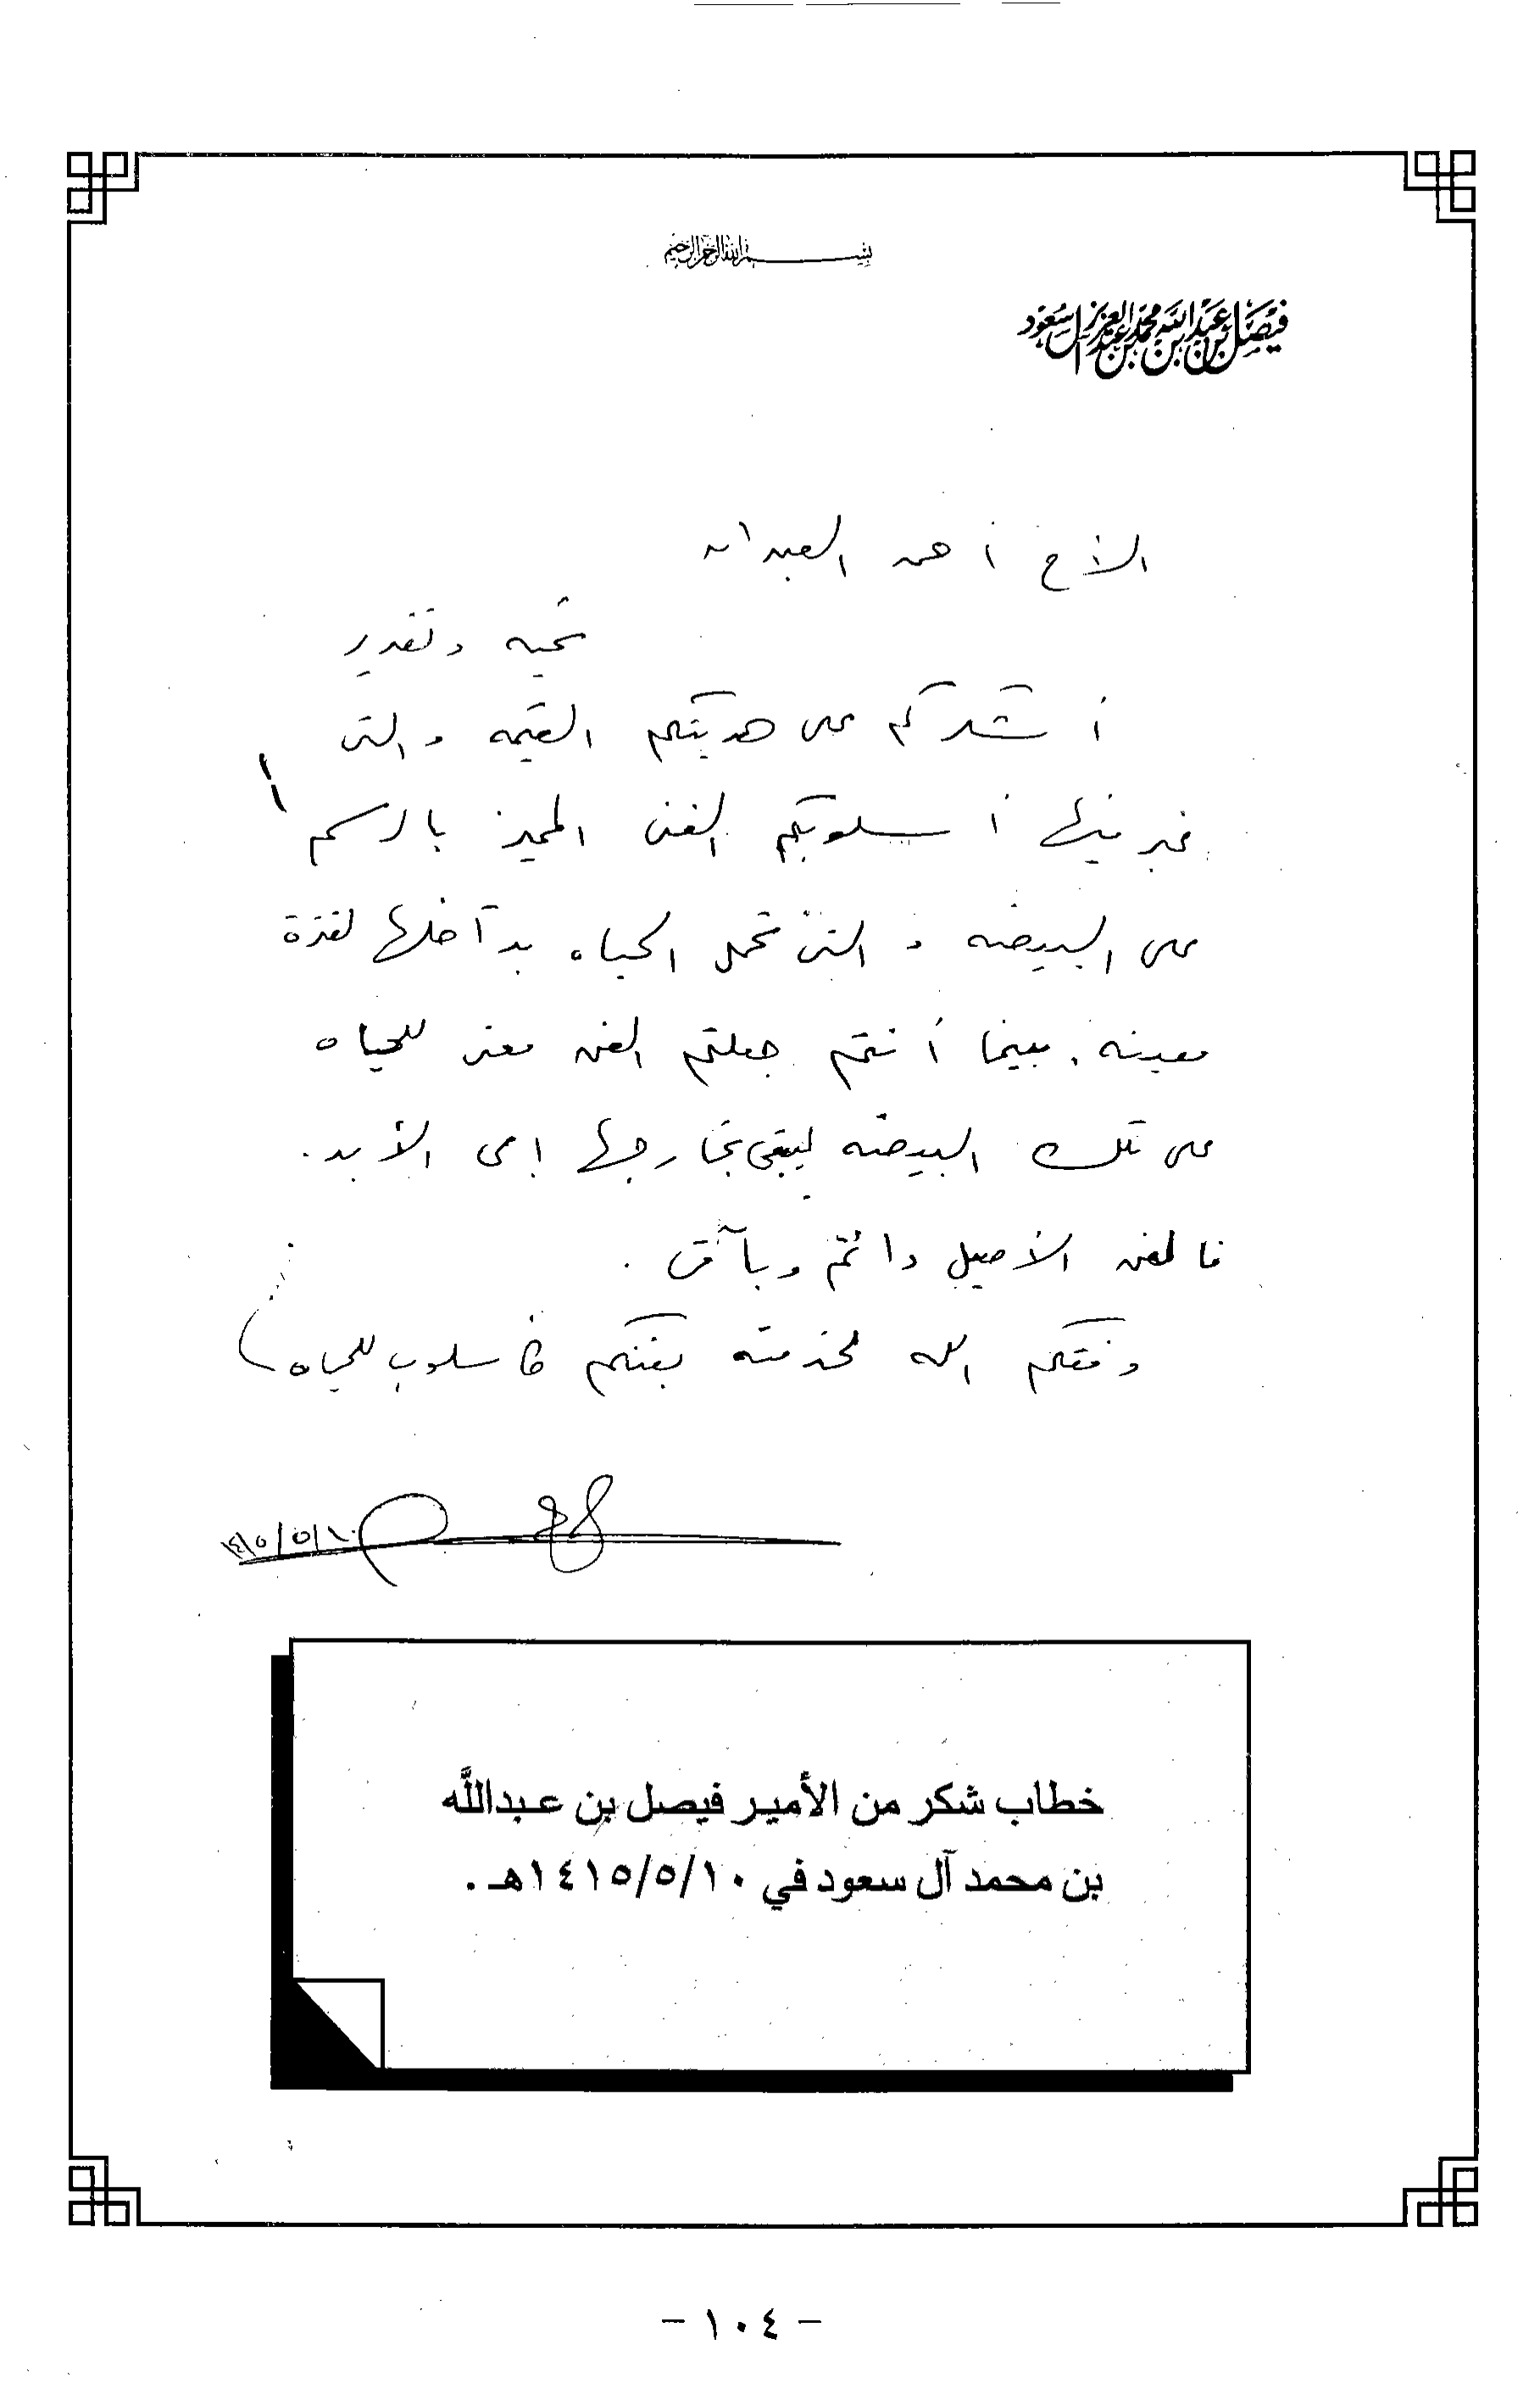 بسم الله الرحمن الرحيم
فيصل بن عبدالله بن محمد بن عبدالعزيز آل سعود
الأخ أحمد العبدان
تحيه وتقدير
أشكركم على هديتكم القيمه والتى
عبر فيها أسلوبكم الفنى المميز بالرسم
على البيضه والتى تحمل الحياه بداخلها لفترة
معينه، بينما أنتم جعلتم الفن معنى للحياه
على تلك البيضه ليبقى بخارجها إلى الأبد.
فالفن الأصيل دائم وباق.
وفقكم الله لخدمة بفنكم كأسلوب للحياه
١٤١٥/٥/١٠
خطاب شكر من الأمير فيصل بن عبدالله
بن محمد آل سعود في ١٤١٥/٥/١٠هـ.
- ١٠٤ -